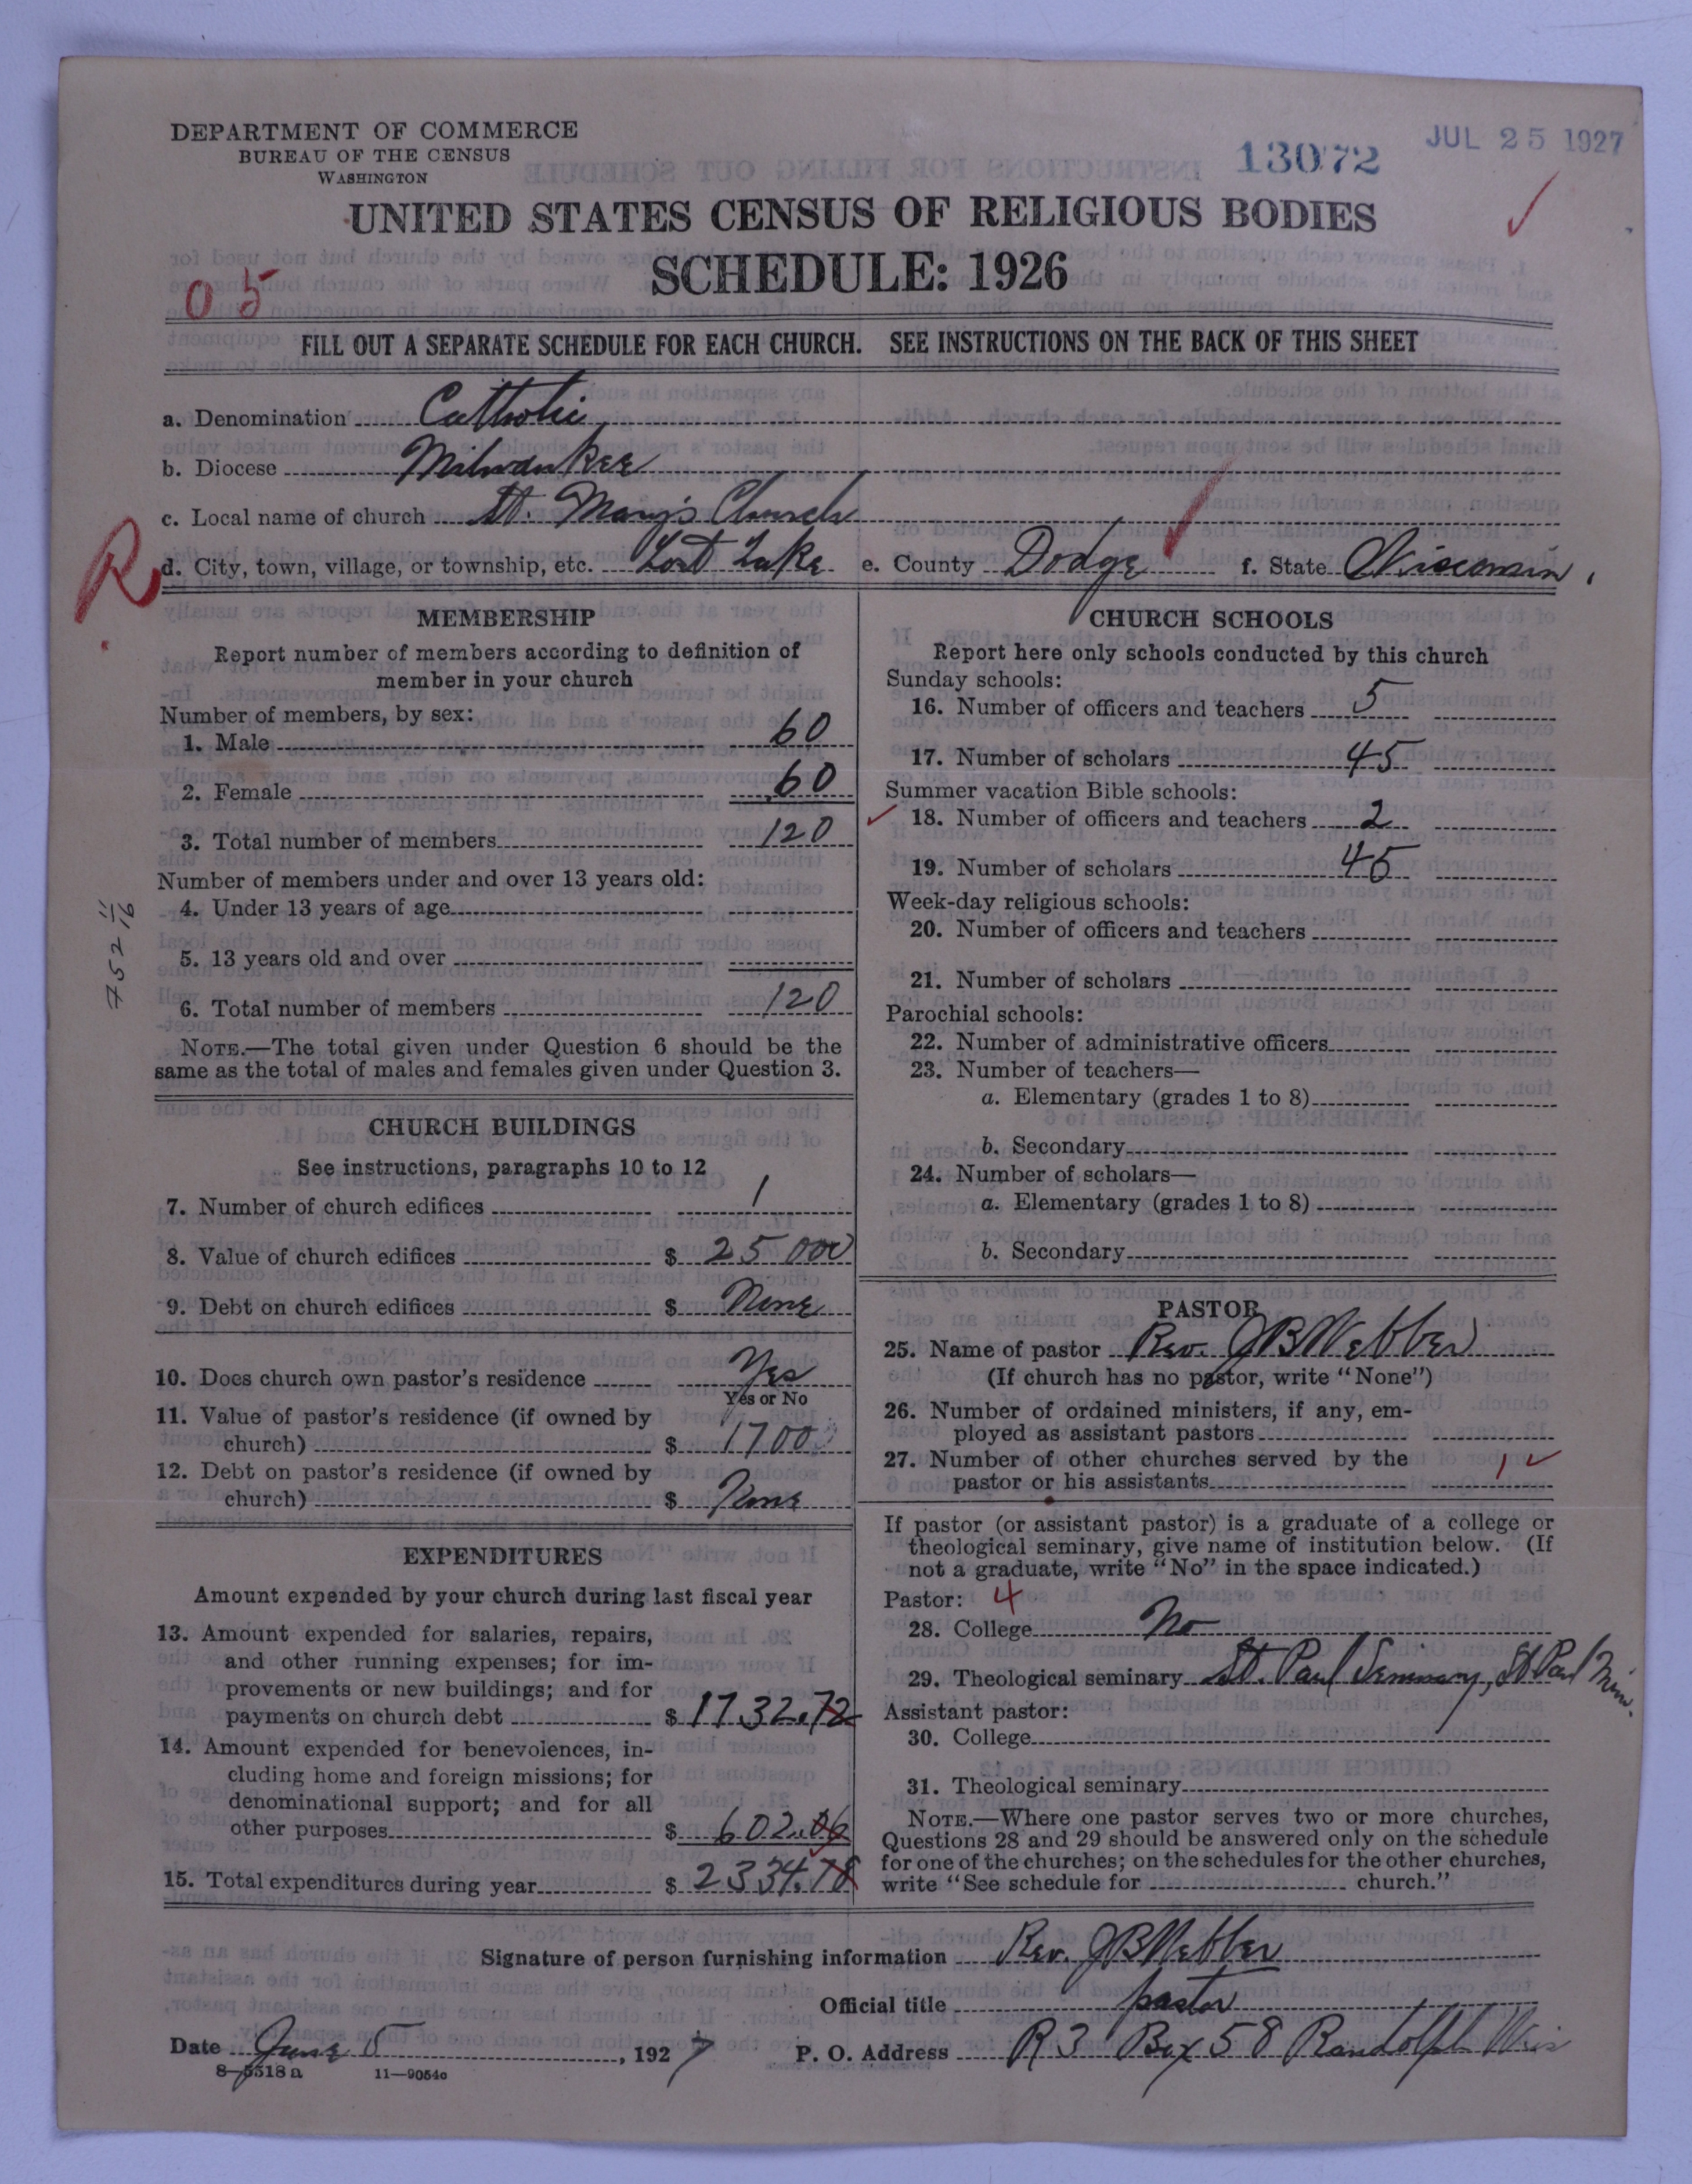 DEPARTMENT OF COMMERCE
BUREAU OF THE CENSUS
WASHINGTON
13072
JUL 25 1927
UNITED STATES CENSUS OF RELIGIOUS BODIES
SCHEDULE: 1926
05
FILL OUT A SEPARATE SCHEDULE FOR EACH CHURCH. SEE INSTRUCTIONS ON THE BACK OF THIS SHEET
a. Denomination Catholic
b. Diocese Milwaukee
c. Local name of church St. Mary's Church
R
d. City, town, village, or township, etc. Lost Lake e. County Dodge f. State Wisconsin
MEMBERSHIP
Report number of members according to definition of
member in your church
Number of members, by sex:
1. Male 60
2. Female 60
3. Total number of members 120
Number of members under and over 13 years old:
4. Under 13 years of age
5. 13 years old and over
6. Total number of members 120
NOTE.—The total given under Question 6 should be the
same as the total of males and females given under Question 3.
752 11/16
CHURCH BUILDINGS
See instructions, paragraphs 10 to 12
7. Number of church edifices 1
8. Value of church edifices $ 25 000
9. Debt on church edifices $ None
10. Does church own pastor's residence Yes
Yes or No
11. Value of pastor's residence (if owned by
church) $ 1700
12. Debt on pastor's residence (if owned by
church) $ None
EXPENDITURES
Amount expended by your church during last fiscal year
13. Amount expended for salaries, repairs,
and other running expenses; for im-
provements or new buildings; and for
payments on church debt $ 1732.72
14. Amount expended for benevolences, in-
cluding home and foreign missions; for
denominational support; and for all
other purposes $ 602.06
15. Total expenditures during year $ 2334.78
CHURCH SCHOOLS
Report here only schools conducted by this church
Sunday schools:
16. Number of officers and teachers 5
17. Number of scholars 45
Summer vacation Bible schools:
18. Number of officers and teachers 2
19. Number of scholars 45
Week-day religious schools:
20. Number of officers and teachers
21. Number of scholars
Parochial schools:
22. Number of administrative officers
23. Number of teachers—
a. Elementary (grades 1 to 8)
b. Secondary
24. Number of scholars—
a. Elementary (grades 1 to 8)
b. Secondary
PASTOR
25. Name of pastor Rev. J B Webber
(If church has no pastor, write "None")
26. Number of ordained ministers, if any, em-
ployed as assistant pastors
27. Number of other churches served by the
pastor or his assistants 1
If pastor (or assistant pastor) is a graduate of a college or
theological seminary, give name of institution below. (If
not a graduate, write "No" in the space indicated.)
Pastor: 4
28. College No
29. Theological seminary St. Paul Seminary, St Paul Minn.
Assistant pastor:
30. College
31. Theological seminary
NOTE.—Where one pastor serves two or more churches,
Questions 28 and 29 should be answered only on the schedule
for one of the churches; on the schedules for the other churches,
write "See schedule for church."
Signature of person furnishing information Rev. J B Webber
Official title pastor
Date June 5, 1927 P. O. Address R 3 Box 58 Randolph Wis
8—5318 a 11—9054o